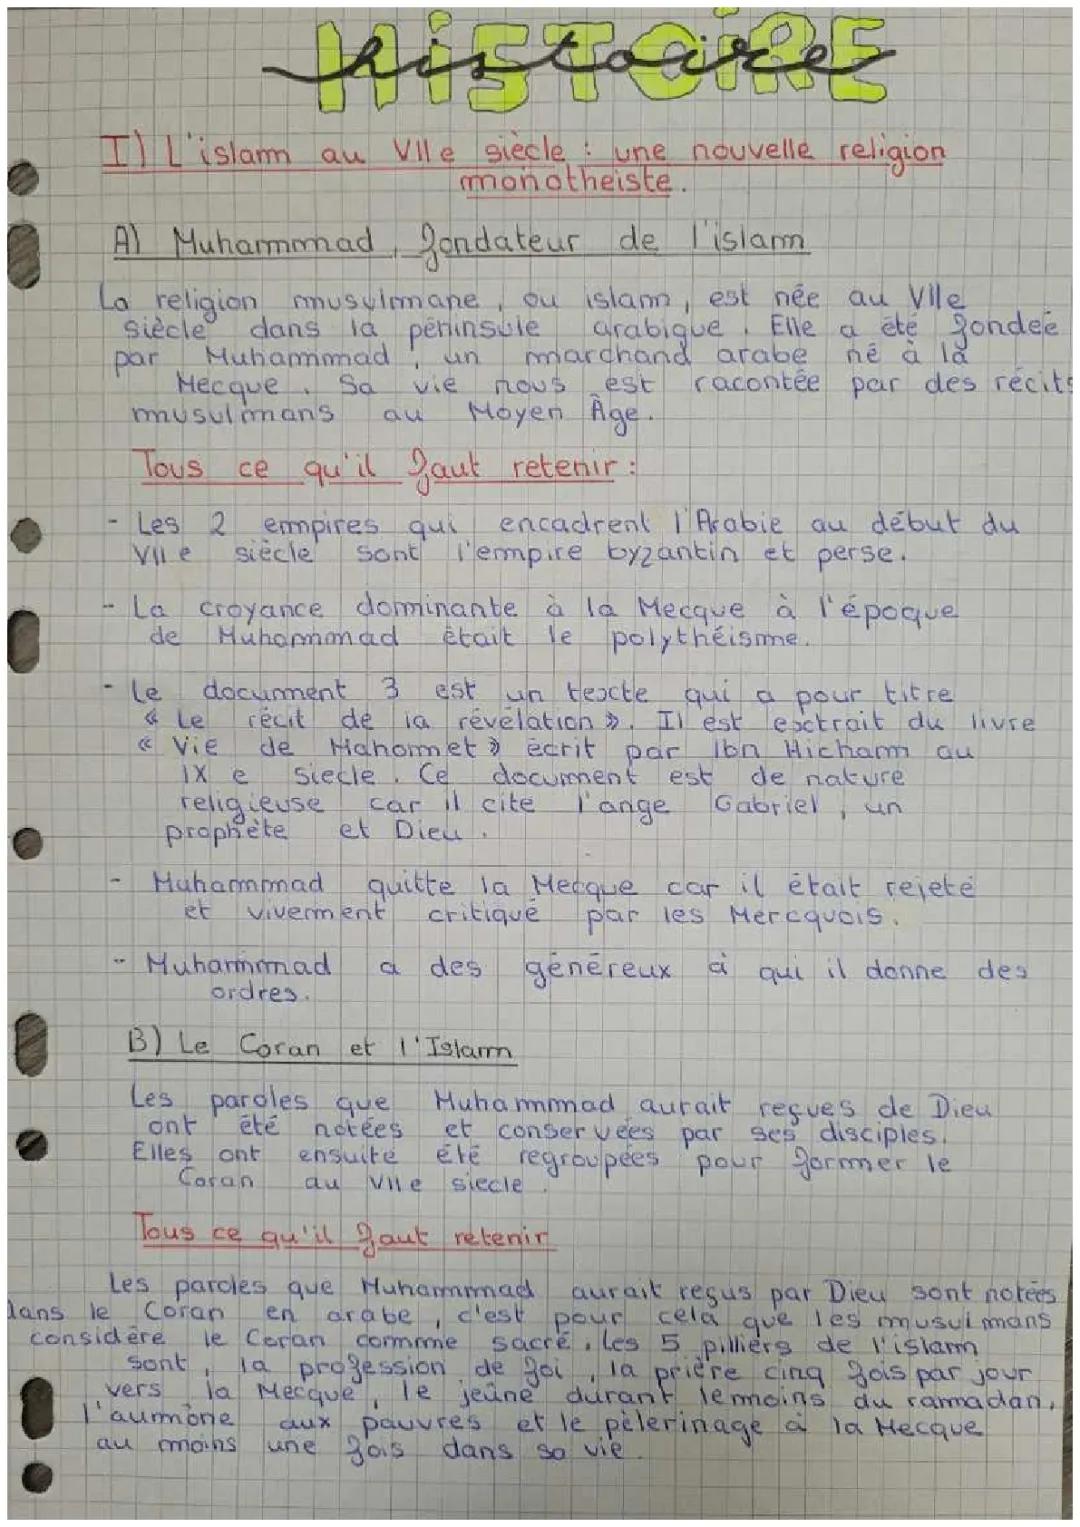 HISTOIRE
histoire
I) L'islam au VIIe siècle : une nouvelle religion
monotheiste.
A) Muhammad, fondateur de l'islam
La religion musulmane, ou islam, est née au VIIe
siècle dans la péninsule arabique. Elle a été fondée
par Muhammad, un marchand arabe né à la
Mecque. Sa vie nous est racontée par des récits
musulmans au Moyen Âge.
Tous ce qu'il faut retenir :
- Les 2 empires qui encadrent l'Arabie au début du
VII e siècle sont l'empire byzantin et perse.
- La croyance dominante à la Mecque à l'époque
de Muhammad était le polythéisme.
- Le document 3 est un texte qui a pour titre
« Le récit de la révélation ». Il est extrait du livre
« Vie de Mahomet » écrit par Ibn Hicham au
IX e siecle. Ce document est de nature
religieuse car il cite l'ange Gabriel, un
prophète et Dieu.
- Muhammad quitte la Mecque car il était rejeté
et vivement critiqué par les Mercquois.
- Muhammad a des généreux à qui il donne des
ordres.
B) Le Coran et l'Islam
Les paroles que Muhammad aurait reçues de Dieu
ont été notées et conservées par ses disciples.
Elles ont ensuite été regroupées pour former le
Coran au VIIe siecle.
Tous ce qu'il faut retenir
Les paroles que Muhammad aurait reçus par Dieu sont notées
dans le Coran en arabe, c'est pour cela que les musulmans
considère le Coran comme sacré. Les 5 pilliers de l'islam
sont, la profession de foi, la prière cinq fois par jour
vers la Mecque, le jeûne durant le moins du ramadan,
l'aumône aux pauvres et le pèlerinage à la Mecque
au moins une fois dans sa vie.